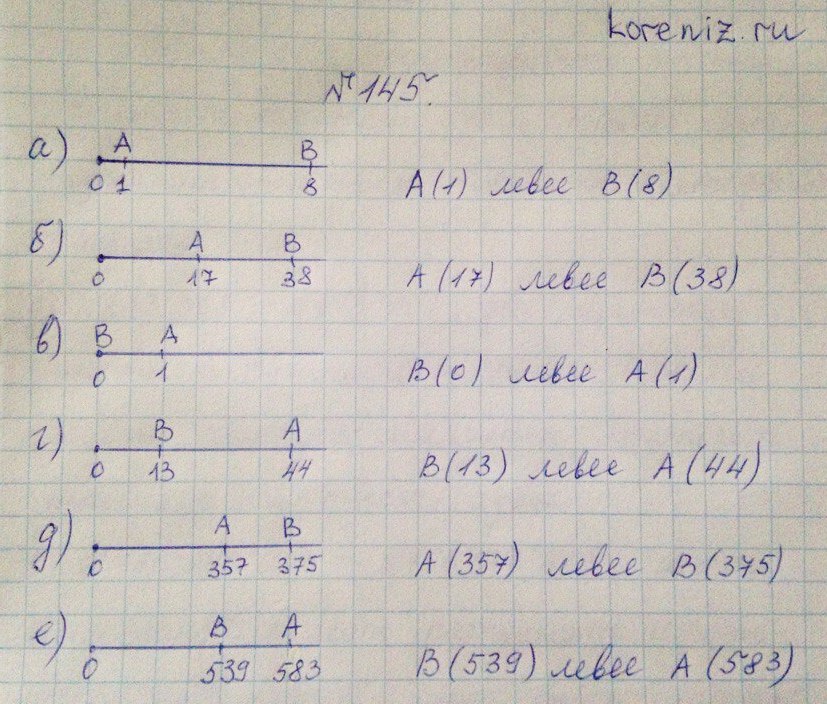 koreniz.ru
№145.
а) A B A(1) левее B(8)
0 1 8
б) A B A(17) левее B(38)
0 17 38
в) B A B(0) левее A(1)
0 1
г) B A B(13) левее A(44)
0 13 44
д) A B A(357) левее B(375)
0 357 375
е) B A B(539) левее A(583)
0 539 583